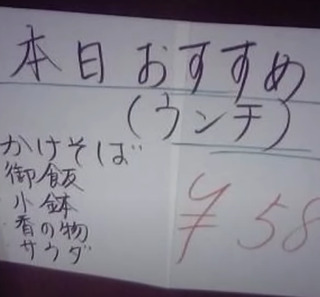 本日おすすめ
(ウンチ)
かけそば
御飯
小鉢
香の物
サウダ
¥58